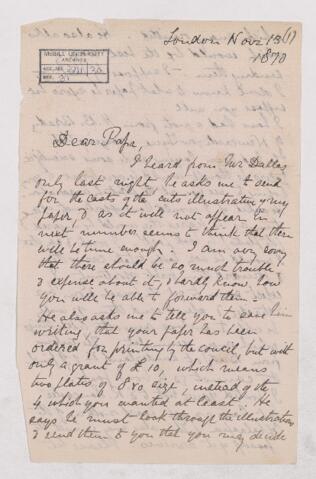 London Nov. 13 (1)
1870
McGILL UNIVERSITY
ARCHIVES
ACC. NO.
REF.
Dear Papa,
I heard from Mr Dallas
only last night, he asks me to send
for the casts of the cuts illustrating my
paper & as it will not appear in
next number seems to think that there
will be time enough. I am very sorry
that there should be so much trouble
& expense about it, I hardly know how
you will be able to forward them.
He also asks me to tell you to save him
writing, that your paper has been
ordered for printing by the council, but with
only a grant of £10, which means
two plates of 8vo size, instead of the
4 which you wanted at least. He
says he must look through the illustrations
& send them to you that you may decide